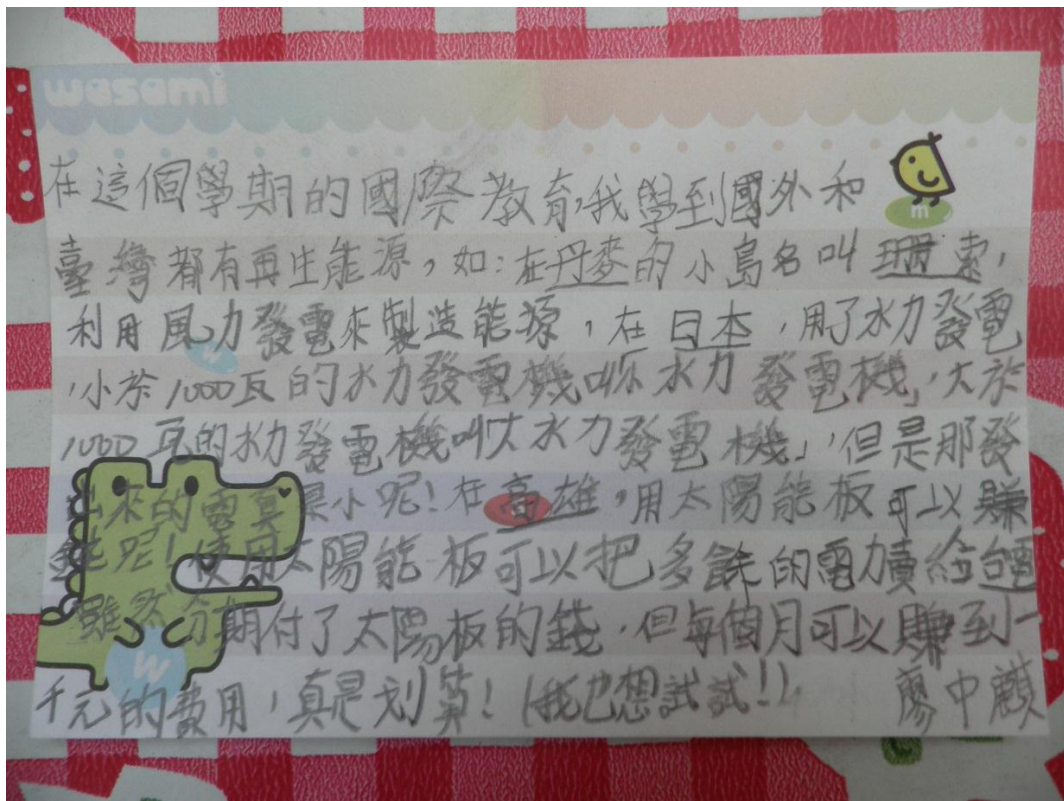 wasami
在這個學期的國際教育,我學到國外和
臺灣都有再生能源,如:在丹麥的小島名叫珊索,
利用風力發電來製造能源,在日本,用了水力發電
,小於1000瓦的水力發電機叫「小水力發電機」,大於
1000瓦的水力發電機叫「大水力發電機」,但是那發
出來的電真是小呢!在高雄,用太陽能板可以賺
錢呢!使用太陽能板可以把多餘的電力賣給台電
雖然分期付了太陽板的錢,但每個月可以賺到一
千元的費用,真是划算!(我也想試試!!)
廖中
m
W
W